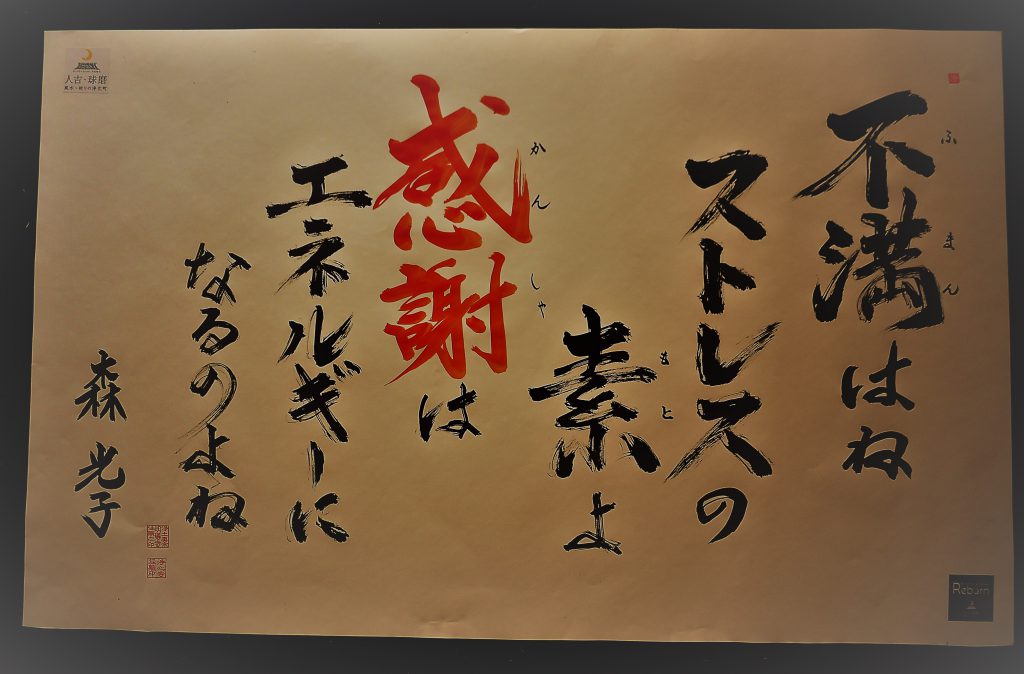 不満はね
ふまん
ストレスの
素よ
もと
感謝は
かんしゃ
エネルギーに
なるのよね
森 光子
人吉・球磨
Reborn